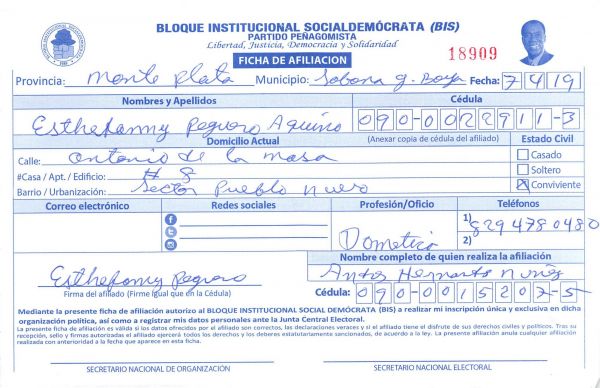 BLOQUE INSTITUCIONAL SOCIALDEMÓCRATA (BIS)
PARTIDO PEÑAGOMISTA
Libertad, Justicia, Democracia y Solidaridad
FICHA DE AFILIACION
18909
Provincia: Monte Plata Municipio: Sabana G. Boya Fecha: 7 4 19
Nombres y Apellidos Cédula
Esthefanny Peguero Aquino 090-0022911-3
Domicilio Actual (Anexar copia de cédula del afiliado) Estado Civil
Calle: Antonio de la Masa Casado
#Casa / Apt. / Edificio: # 8 Soltero
Barrio / Urbanización: Sector Pueblo Nuevo Conviviente
Correo electrónico Redes sociales Profesión/Oficio Teléfonos
1) 829 478 0480
Dometica 2)
Nombre completo de quien realiza la afiliación
Esthefanny Peguero Hernando Nuñez
Firma del afiliado (Firme Igual que en la Cédula) Cédula: 090-0015207-5
Mediante la presente ficha de afiliación autorizo al BLOQUE INSTITUCIONAL SOCIAL DEMÓCRATA (BIS) a realizar mi inscripción única y exclusiva en dicha
organización política, así como a registrar mis datos personales ante la Junta Central Electoral.
La presente ficha de afiliación es válida si los datos ofrecidos por el afiliado son correctos, las declaraciones veraces y si el afiliado tiene el disfrute de sus derechos civiles y políticos. Tras su
recepción, sello y firmas autorizadas el afiliado ejercerá todos los derechos y los deberes estatutariamente sancionados, de acuerdo a la ley. La presente afiliación anula cualquier afiliación
realizada con anterioridad a la fecha que aparece en esta ficha.
SECRETARIO NACIONAL DE ORGANIZACIÓN SECRETARIO NACIONAL ELECTORAL